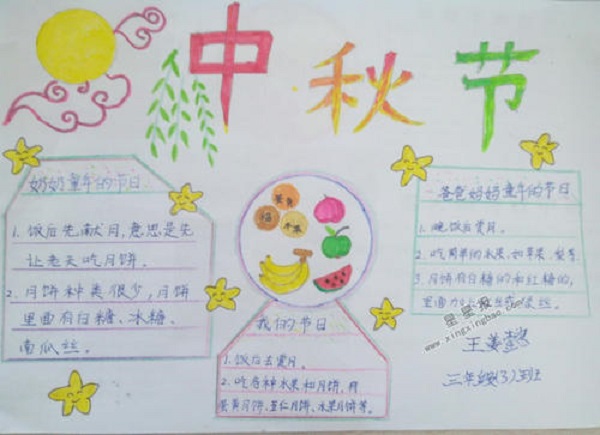 中秋节
奶奶童年的节日
1. 饭后先献月,意思是先
让老天吃月饼。
2. 月饼种类很少,月饼
里面有白糖、冰糖、
南瓜丝。
蛋黄
水果
我的节日
1. 饭后去赏月。
2. 吃各种水果和月饼,有
蛋黄月饼、五仁月饼、水果月饼等。
爸爸妈妈童年的节日
1. 晚饭后赏月。
2. 吃简单的水果,如苹果、梨等
3. 月饼有白糖的和红糖的,
里面
丝。
星星报
www.xingxingbao.com
王姜
三年级(3)班